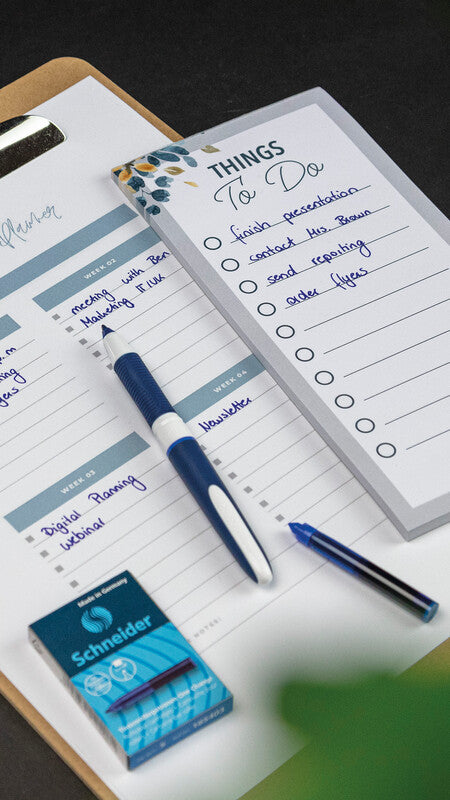 THINGS
To Do
finish presentation
contact Mrs. Brown
send reporting
order flyers
Planner
WEEK 02
meeting with Ben
Marketing IT/UK
WEEK 04
Newsletter
WEEK 03
Digital Planning
webinar
NOTES:
Made in Germany
Schneider